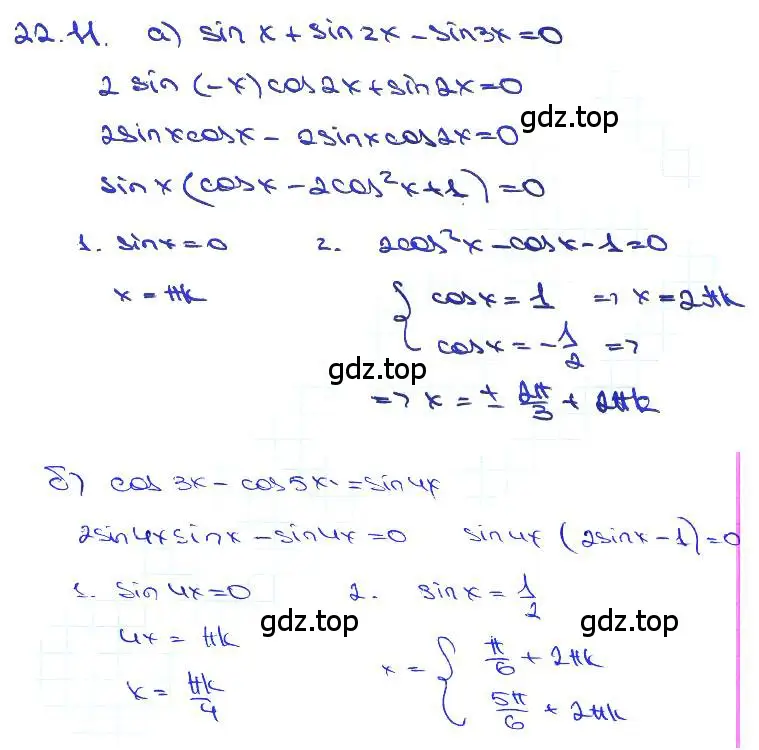 22.11. а) sin x + sin 2x - sin 3x = 0
2 sin (-x) cos 2x + sin 2x = 0
gdz.top
2 sin x cos x - 2 sin x cos 2x = 0
sin x (cos x - 2cos²x + 1) = 0
1. sin x = 0 2. 2cos²x - cos x - 1 = 0
x = πk { cos x = 1 => x = 2πk
cos x = -1/2 =>
gdz.top
=> x = ± 2π/3 + 2πk
б) cos 3x - cos 5x = sin 4x
2 sin 4x sin x - sin 4x = 0 sin 4x (2 sin x - 1) = 0
1. sin 4x = 0 2. sin x = 1/2
gdz.top gdz.top
4x = πk x = { π/6 + 2πk
x = πk/4 5π/6 + 2πk